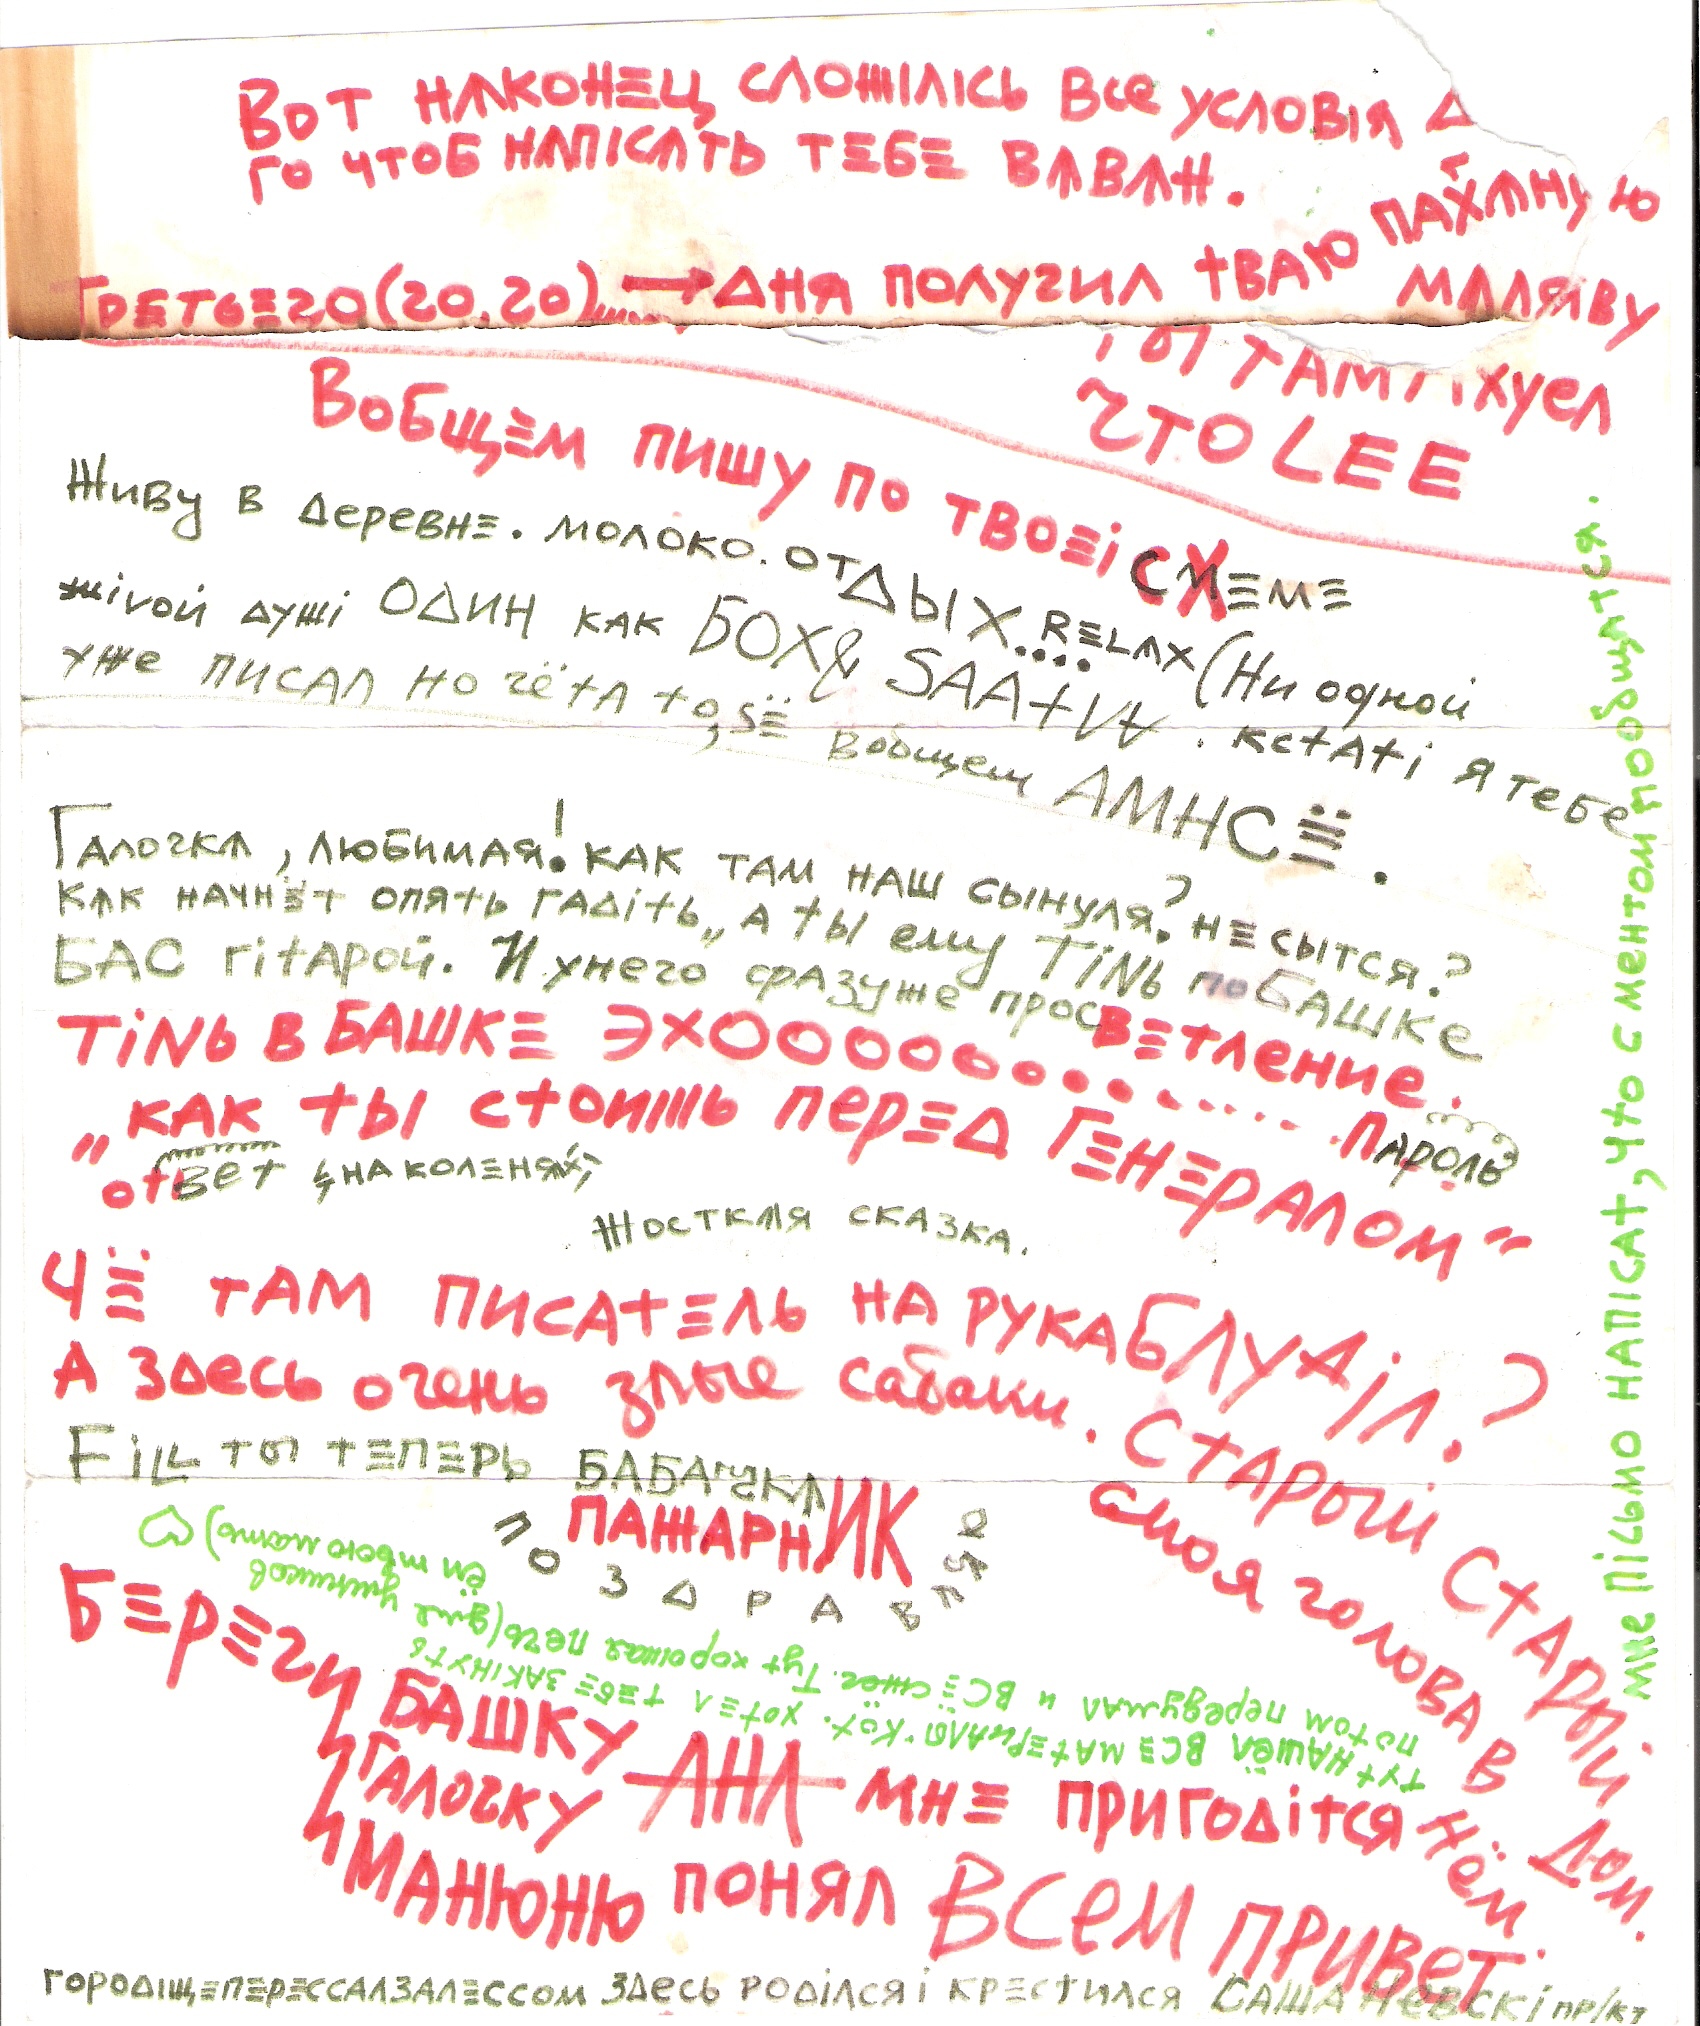 Вот наконец сложілісь все условія д
го чтоб напісать тебе ваван.
третьего (20.20) → дня получил тваю пахану ю
маляву
ты там ахуел
что LEE
Вобщем пишу по твоеі схеме
Живу в деревне. молоко. отдых.... RELAX (Ни одной
жівой душі один как БОХ & SAAtVV. кстаті я тебе
уже писал но чётл то, sё вобщем АМНСЁ.
Галочка, любимая! как там наш сынуля? не сытся?
как начнёт опять гадіть,, а ты ему TiNь по башке
БАС гітарой. И у него сразуже просветление.
TiNь в башке эхооооооо............ Пароль
„как ты стоишь перед генералом"
ответ „на коленях"
Жосткая сказка.
Чё там писатель на рукаблуділ?
А здесь очень злые сабаки. Старый старый дом.
смоя голова в нём.
Fill ты теперь бабачка
пажарник
поздравляю
тут нашёл все материалы. кох. хотел тебе закінуть
потом передумал и всё сжог. Тут хорошая печь (для дшников
ём твою мать) ♡
Береги башку
Галочку АНА мне пригодітся
Манюню понял всем привет.
городіщепересcалзалессом здесь роділся і крестился Саша Невскі пр/кт
мне пісьмо напісат, что с ментом пообщатся.